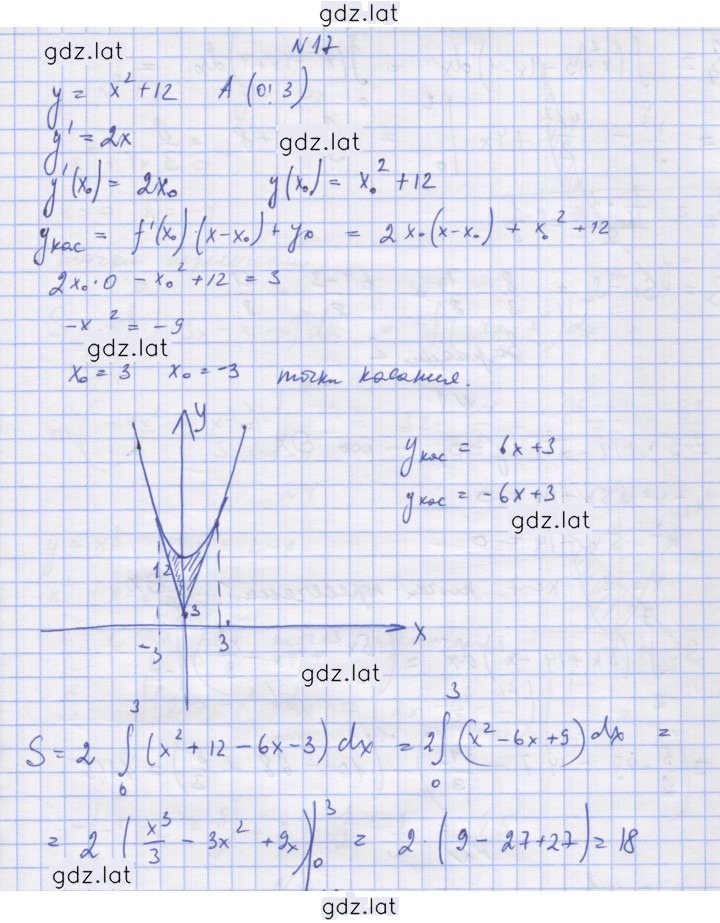 gdz.lat
gdz.lat
N 17
y = x² + 12 A (0; 3)
y' = 2x
gdz.lat
y'(x₀) = 2x₀ y(x₀) = x₀² + 12
yкас = f'(x₀)·(x-x₀) + y₀ = 2x₀(x-x₀) + x₀² + 12
2x₀·0 - x₀² + 12 = 3
-x² = -9
gdz.lat
x₀ = 3 x₀ = -3 точки касания.
y
yкас = 6x+3
yкас = -6x+3
gdz.lat
12
3
x
-3 3
gdz.lat
S = 2 ∫₀³ (x² + 12 - 6x - 3) dx = 2 ∫₀³ (x² - 6x + 9) dx =
= 2 (x³/3 - 3x² + 9x)|₀³ = 2·(9 - 27 + 27) = 18
gdz.lat
gdz.lat